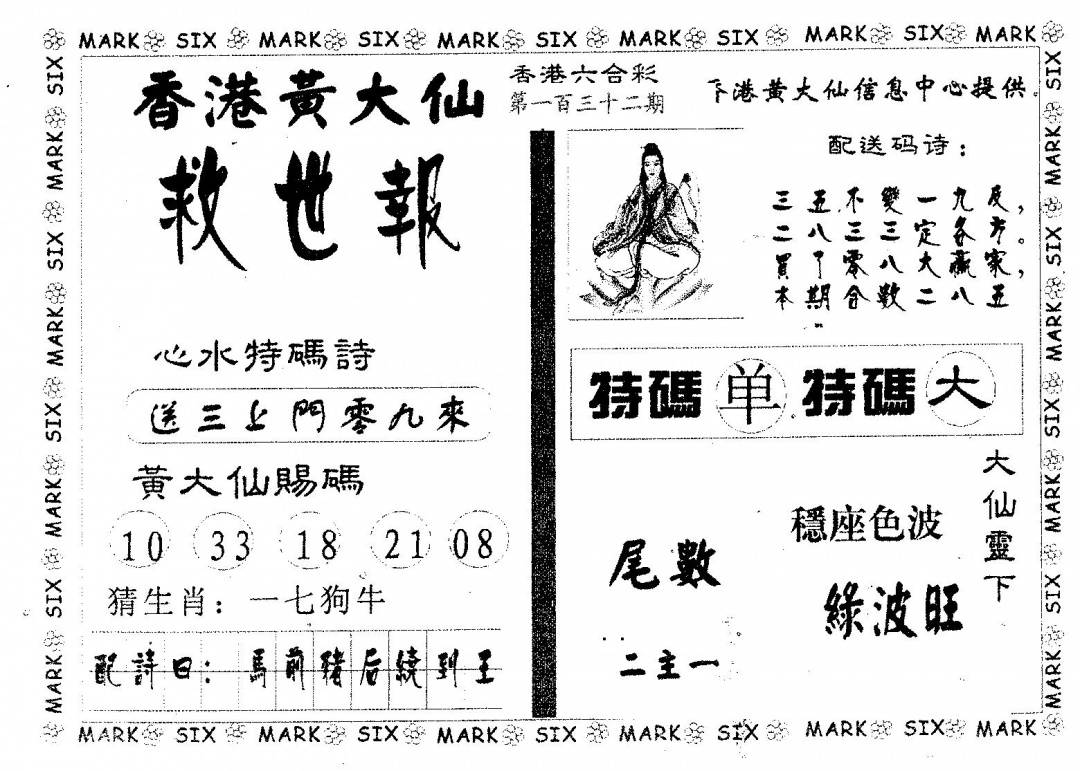 MARK SIX MARK SIX MARK SIX MARK SIX MARK SIX MARK
香港黃大仙
救世報
香港六合彩
第一百三十二期
下港黄大仙信息中心提供。
配送码诗：
三五不變一九反，
二八三三定各方。
買了零八大赢家，
本期合數二八五
心水特碼詩
送三上門零九來
特碼 单 特碼 大
黃大仙賜碼
10 33 18 21 08
猜生肖：一七狗牛
配詩曰：馬前豬后繞到王
尾數
二主一
穩座色波
綠波旺
大仙靈下
MARK SIX MARK SIX MARK SIX MARK SIX MARK SIX MARK
MARK SIX MARK SIX MARK SIX MARK SIX
MARK SIX MARK SIX MARK SIX MARK SIX